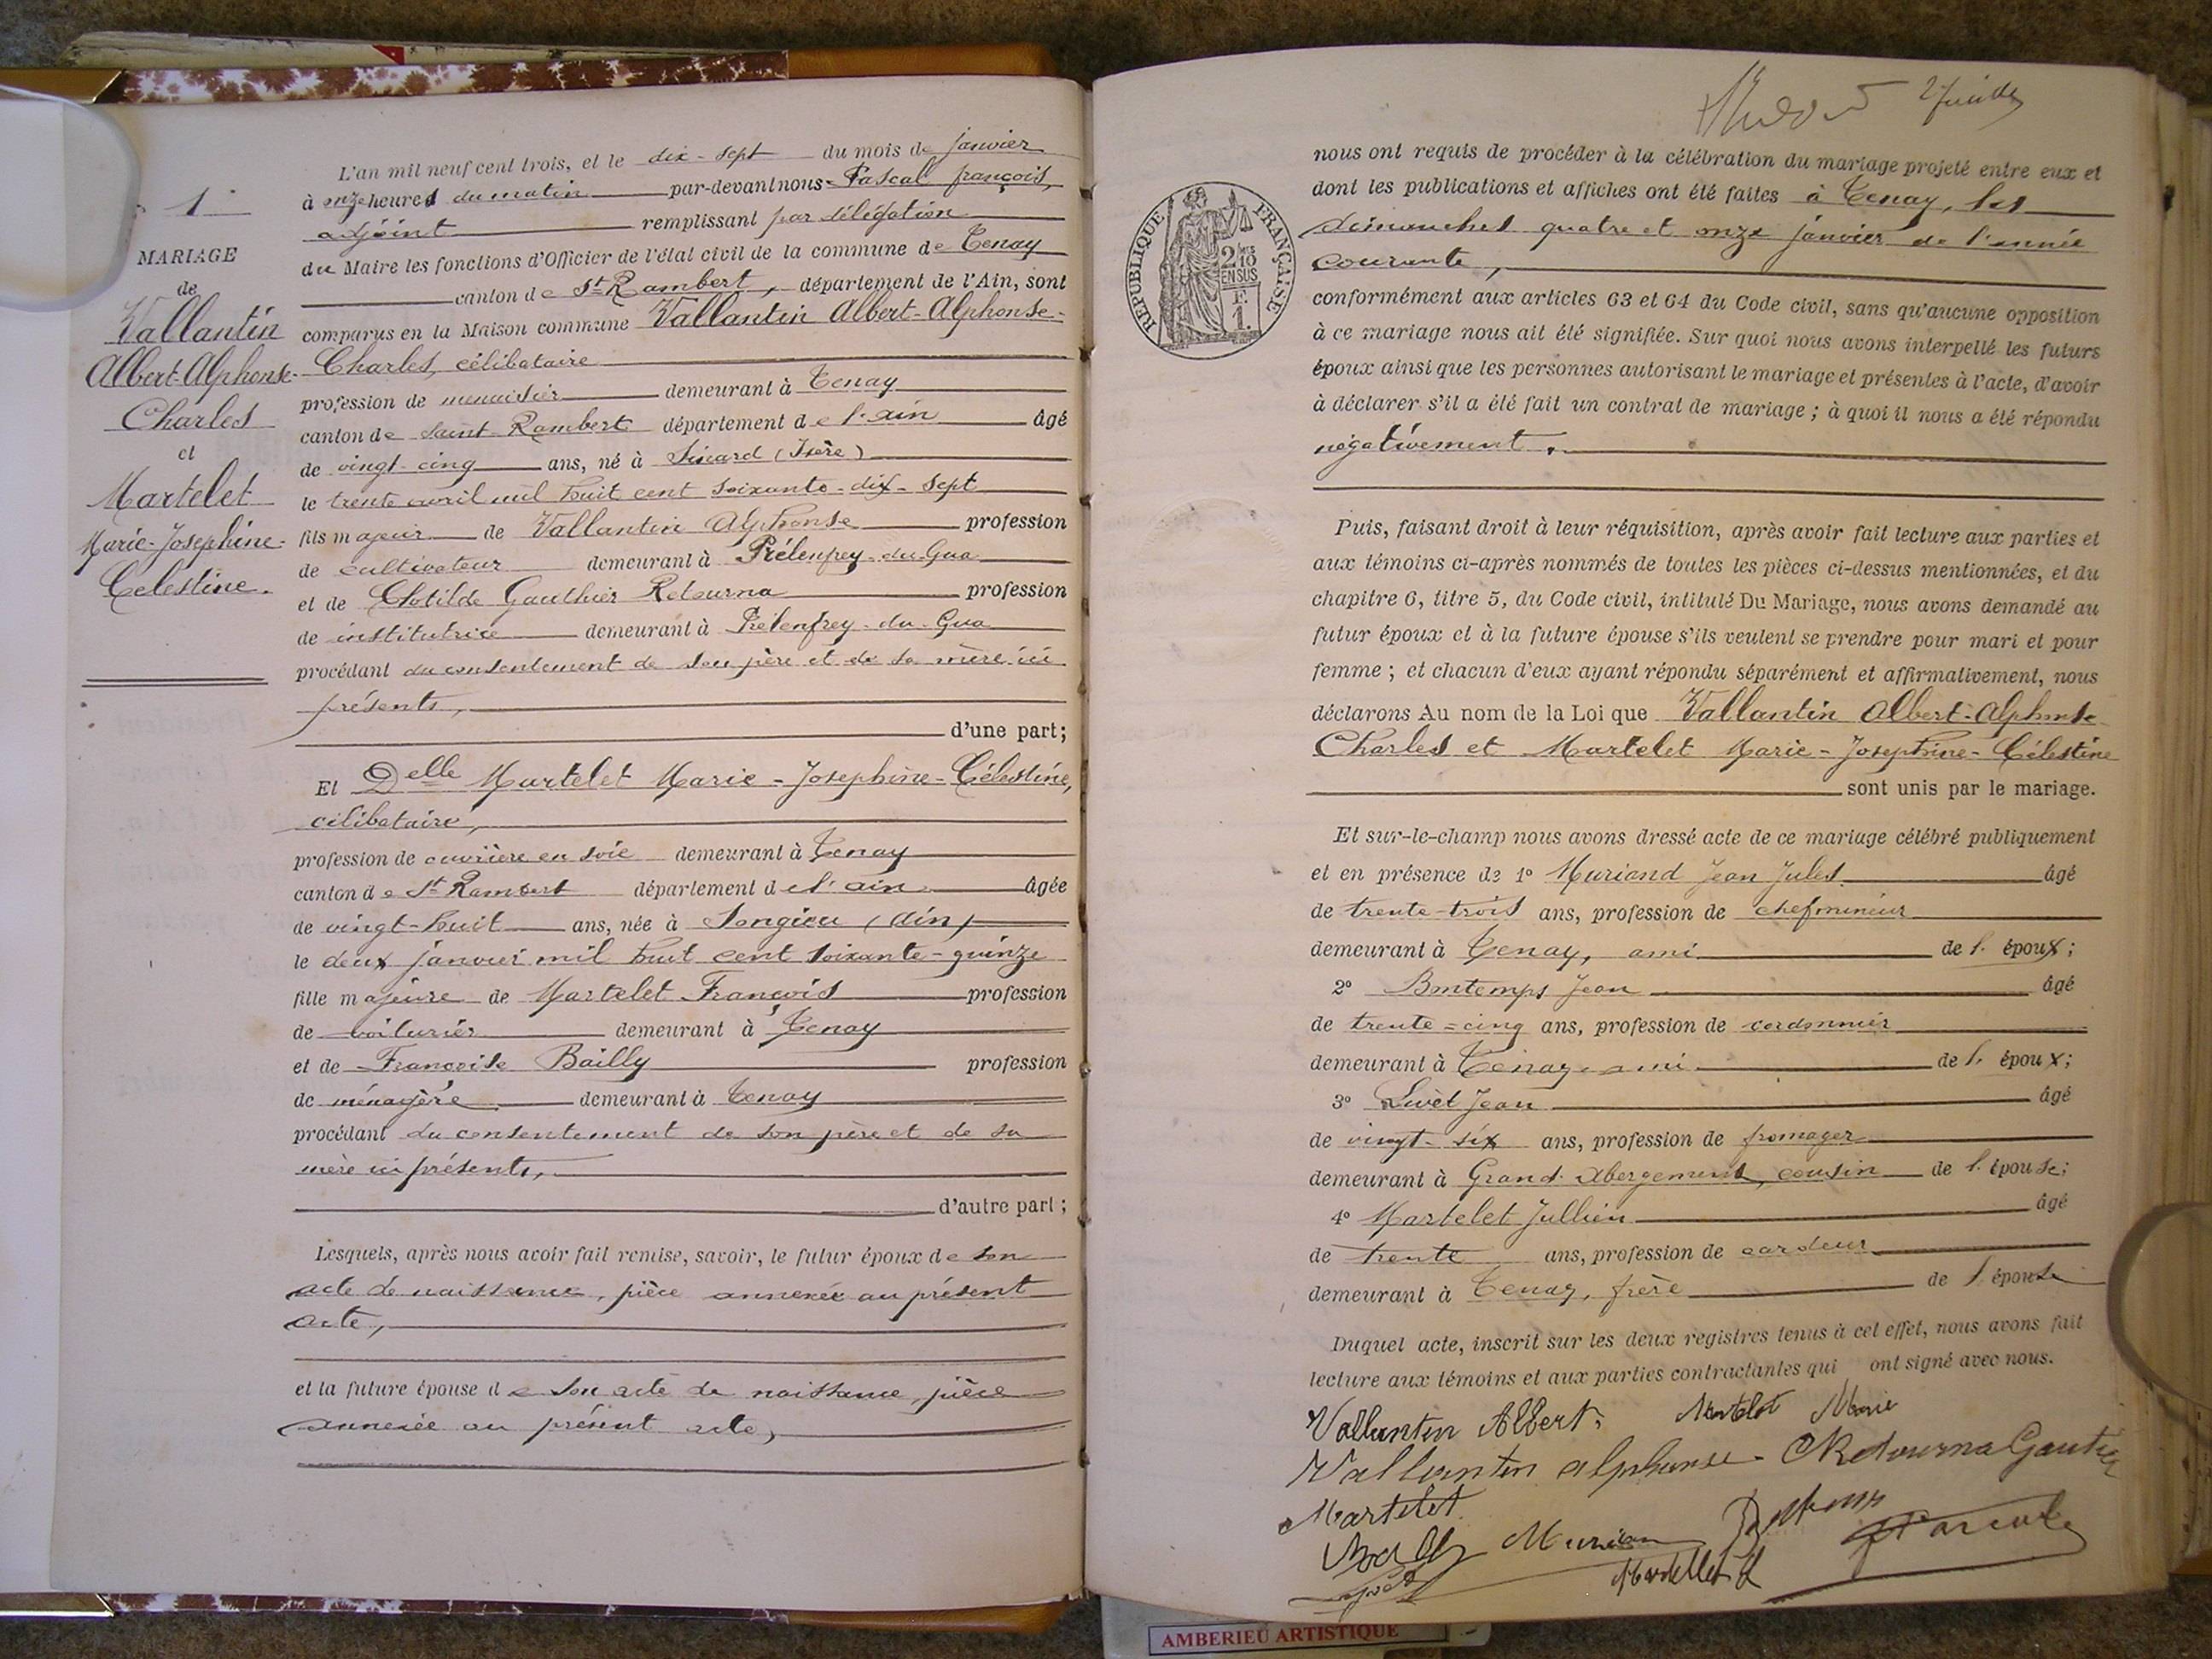 1
MARIAGE
de
Vallantin
Albert-Alphonse-
Charles
et
Martelet
Marie-Josephine-
Celestine.
L'an mil neuf cent trois, et le dix-sept du mois de janvier
à onze heures du matin par-devant nous Pascal françois,
adjoint remplissant par délégation
du Maire les fonctions d'Officier de l'état civil de la commune de Tenay
canton de St Rambert, département de l'Ain, sont
comparus en la Maison commune Vallantin Albert-Alphonse-
Charles, célibataire
profession de menuisier demeurant à Tenay
canton de Saint Rambert département de l'ain âgé
de vingt-cinq ans, né à Sinard (Isère)
le trente avril mil huit cent soixante-dix-sept
fils majeur de Vallantin Alphonse profession
de cultivateur demeurant à Prélenfrey-du-Gua
et de Clotilde Gauthier Retourna profession
de institutrice demeurant à Prélenfrey-du-Gua
procédant du consentement de son père et de sa mère ici
présents,
d'une part;
Et Delle Martelet Marie-Josephine-Célestine,
célibataire,
profession de ouvrière en soie demeurant à Tenay
canton de St Rambert département de l'ain âgée
de vingt-huit ans, née à Songieu (Ain)
le deux janvier mil huit cent soixante-quinze
fille majeure de Martelet François profession
de voiturier demeurant à Tenay
et de Françoise Bailly profession
de ménagère demeurant à Tenay
procédant du consentement de son père et de sa
mère ici présents,
d'autre part;
Lesquels, après nous avoir fait remise, savoir, le futur époux de son
acte de naissance, pièce annexée au présent
acte,
et la future épouse de son acte de naissance, pièce
annexée au présent acte,
RÉPUBLIQUE FRANÇAISE
2/10
EN SUS
1.
nous ont requis de procéder à la célébration du mariage projeté entre eux et
dont les publications et affiches ont été faites à Tenay, les
dimanches quatre et onze janvier de l'année
courante,
conformément aux articles 63 et 64 du Code civil, sans qu'aucune opposition
à ce mariage nous ait été signifiée. Sur quoi nous avons interpellé les futurs
époux ainsi que les personnes autorisant le mariage et présentes à l'acte, d'avoir
à déclarer s'il a été fait un contrat de mariage ; à quoi il nous a été répondu
négativement.
Puis, faisant droit à leur réquisition, après avoir fait lecture aux parties et
aux témoins ci-après nommés de toutes les pièces ci-dessus mentionnées, et du
chapitre 6, titre 5, du Code civil, intitulé Du Mariage, nous avons demandé au
futur époux et à la future épouse s'ils veulent se prendre pour mari et pour
femme ; et chacun d'eux ayant répondu séparément et affirmativement, nous
déclarons Au nom de la Loi que Vallantin Albert-Alphonse
Charles et Martelet Marie-Josephine-Célestine
sont unis par le mariage.
Et sur-le-champ nous avons dressé acte de ce mariage célébré publiquement
et en présence de 1° Muriand Jean Jules âgé
de trente-trois ans, profession de chef mineur
demeurant à Tenay, ami de l'époux;
2° Bontemps Jean âgé
de trente=cinq ans, profession de cordonnier
demeurant à Tenay ami de l'époux;
3° Livet Jean âgé
de vingt-six ans, profession de fromager
demeurant à Grand Abergement, cousin de l'épouse;
4° Martelet Jullien âgé
de trente ans, profession de cardeur
demeurant à Tenay, frère de l'épouse
Duquel acte, inscrit sur les deux registres tenus à cet effet, nous avons fait
lecture aux témoins et aux parties contractantes qui ont signé avec nous.
Vallantin Albert Martelet Marie
Vallantin alphonse CRetourna Gautier
Martelet
AMBERIEU ARTISTIQUE